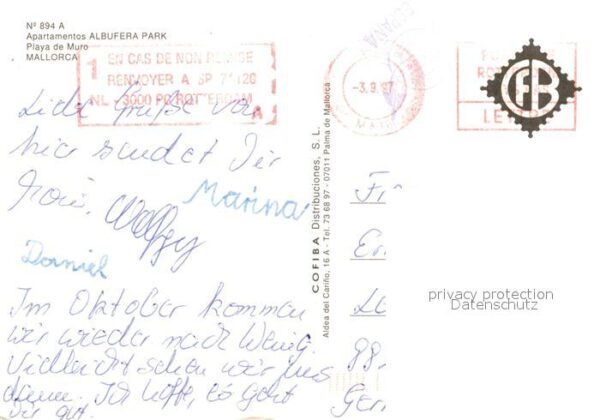 Nº 894 A
Apartamentos ALBUFERA PARK
Playa de Muro
MALLORCA
1 EN CAS DE NON REMISE
RENVOYER A SP 7 120
NL - 3000 PC ROTTERDAM
A
ESPAÑA
-3.9.97
LETTRE
CFB
Grüße von
hier sendet Dir
Marina
Daniel
Im Oktober kommen
wir wieder nach
Vielleicht sehen wir uns
dann. Ich hoffe, es geht
Dir gut.
COFIBA Distribuciones, S. L.
Aldea del Cariño, 16 A - Tel. 73 68 97 - 07011 Palma de Mallorca
88
Ger
privacy protection
Datenschutz